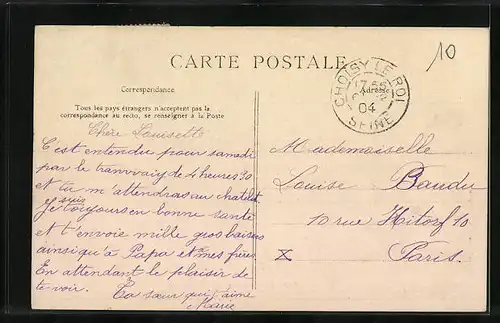 CARTE POSTALE
10
Correspondance
Adresse
Tous les pays étrangers n'acceptent pas la
correspondance au recto, se renseigner à la Poste
CHOISY-LE-ROI
04
SEINE
Chère Louisette
C'est entendu pour samedi
par le tramway de 4 heures 30
et tu m'attendras au chatelet
Je suis toujours en bonne santé
et t'envoie mille gros baisers
ainsi qu'à Papa et mes frères.
En attendant le plaisir de
te voir. Ta sœur qui t'aime
Marie
Mademoiselle
Louise Baudu
10 rue Hitorf 10
X Paris.